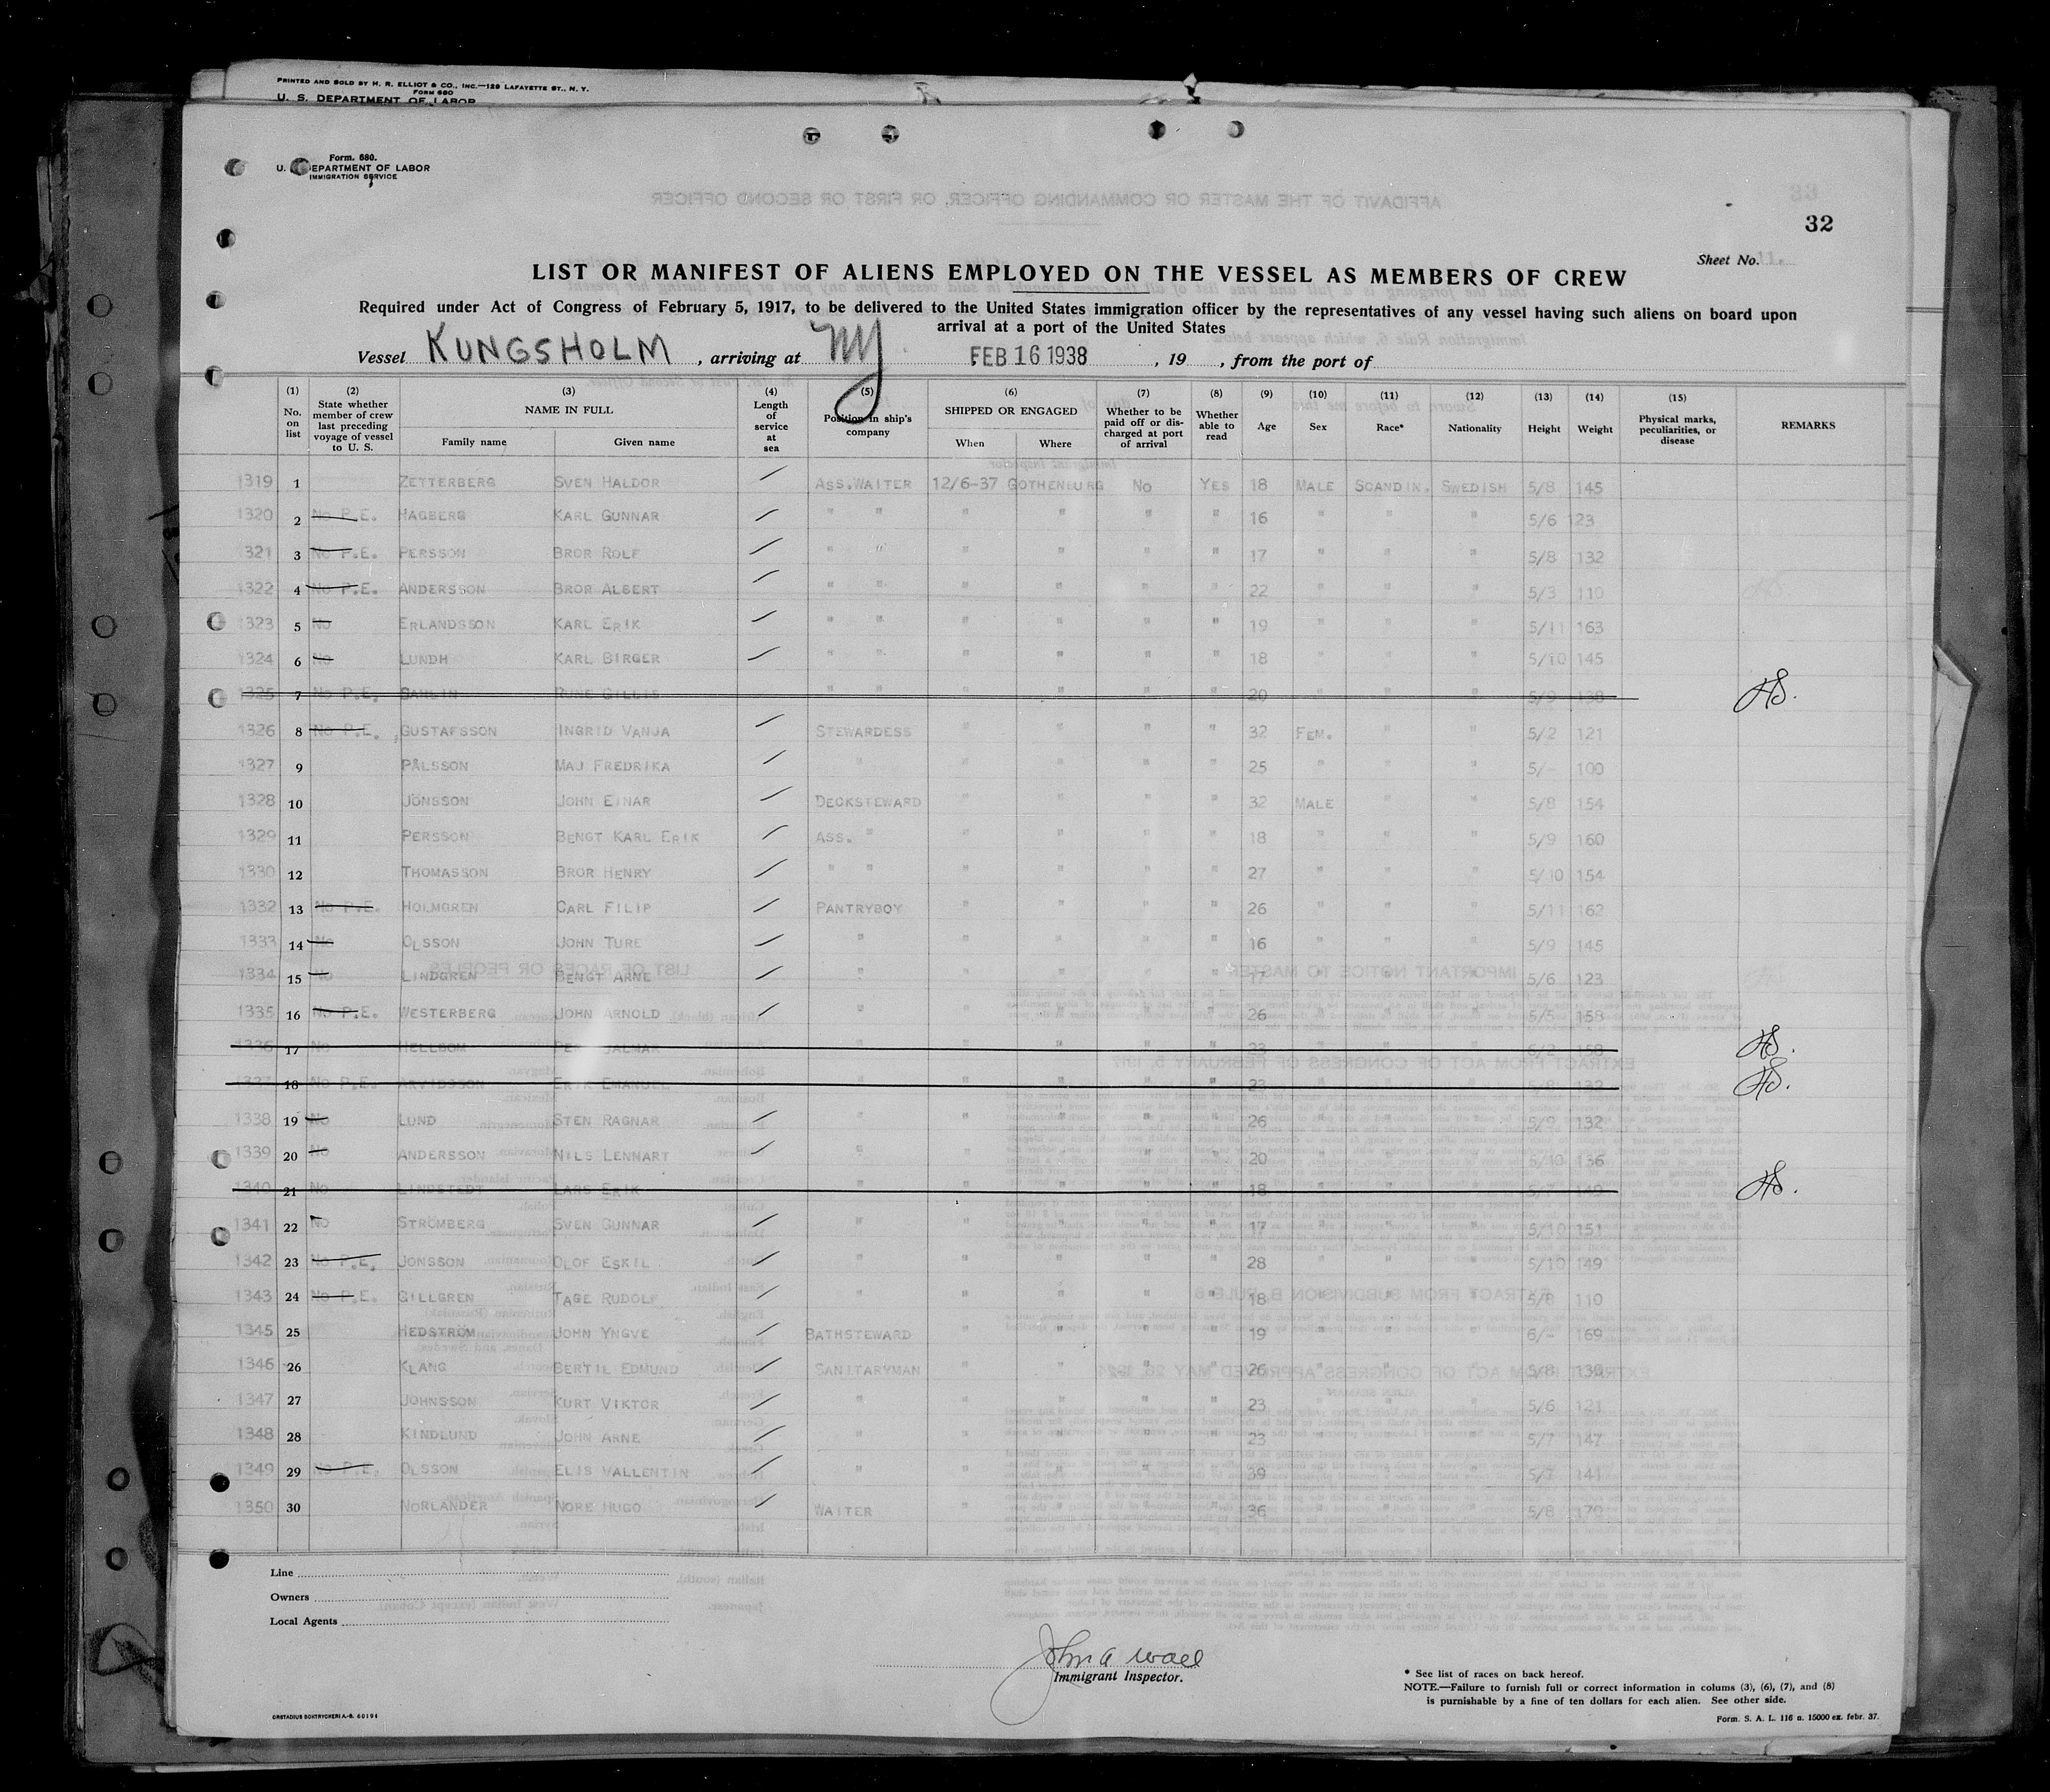 PRINTED AND SOLD BY H. R. ELLIOT & CO., INC.—129 LAFAYETTE ST., N. Y.
FORM 680
U. S. DEPARTMENT OF LABOR
Form. 680.
U. DEPARTMENT OF LABOR
IMMIGRATION SERVICE
32
Sheet No. 11.
LIST OR MANIFEST OF ALIENS EMPLOYED ON THE VESSEL AS MEMBERS OF CREW
Required under Act of Congress of February 5, 1917, to be delivered to the United States immigration officer by the representatives of any vessel having such aliens on board upon
arrival at a port of the United States
Vessel KUNGSHOLM, arriving at NY FEB 16 1938, 19 , from the port of
(1) No. on list (2) State whether member of crew last preceding voyage of vessel to U. S. (3) NAME IN FULL Family name Given name (4) Length of service at sea (5) Position in ship's company (6) SHIPPED OR ENGAGED When Where (7) Whether to be paid off or discharged at port of arrival (8) Whether able to read (9) Age (10) Sex (11) Race* (12) Nationality (13) Height (14) Weight (15) Physical marks, peculiarities, or disease REMARKS
1319 1 ZETTERBERG SVEN HALDOR / ASS.WAITER 12/6-37 GOTHENBURG NO YES 18 MALE SCANDIN. SWEDISH 5/8 145
1320 2 NO P.E. HAGBERG KARL GUNNAR / " " " " " " 16 " " " 5/6 123
1321 3 NO P.E. PERSSON BROR ROLF / " " " " " " 17 " " " 5/8 132
1322 4 NO P.E. ANDERSSON BROR ALBERT / " " " " " " 22 " " " 5/3 110
1323 5 NO ERLANDSSON KARL ERIK / " " " " " " 19 " " " 5/11 163
1324 6 NO LUNDH KARL BIRGER / " " " " " " 18 " " " 5/10 145
1325 7 NO P.E. SAHLIN RUNE GILLIS " " " " " " 20 " " " 5/9 138
1326 8 NO P.E. GUSTAFSSON INGRID VANJA / STEWARDESS " " " " 32 FEM. " " 5/2 121
1327 9 PÅLSSON MAJ FREDRIKA / " " " " " 25 " " " 5/- 100
1328 10 JÖNSSON JOHN EINAR / DECKSTEWARD " " " " 32 MALE " " 5/8 154
1329 11 PERSSON BENGT KARL ERIK / ASS. " " " " " 18 " " " 5/9 160
1330 12 THOMASSON BROR HENRY / " " " " " " 27 " " " 5/10 154
1332 13 NO P.E. HOLMGREN CARL FILIP / PANTRYBOY " " " " 26 " " " 5/11 162
1333 14 NO OLSSON JOHN TURE / " " " " " 16 " " " 5/9 145
1334 15 NO LINDGREN BENGT ARNE / " " " " " 17 " " " 5/6 123
1335 16 NO P.E. WESTERBERG JOHN ARNOLD / " " " " " 26 " " " 5/5 158
1336 17 NO HELLBOM " " " " " 23 " " " 6/2 158
1337 18 NO P.E. ARVIDSSON ERIK EMANUEL " " " " " 23 " " " 5/8 132
1338 19 NO LUND STEN RAGNAR / " " " " " 26 " " " 5/9 132
1339 20 NO ANDERSSON NILS LENNART / " " " " " 20 " " " 5/10 136
1340 21 NO LINDSTEDT LARS ERIK " " " " " 18 " " " 5/7 149
1341 22 NO STRÖMBERG SVEN GUNNAR / " " " " " 17 " " " 5/10 151
1342 23 NO P.E. JONSSON OLOF ESKIL / " " " " " 28 " " " 5/10 149
1343 24 NO P.E. GILLGREN TAGE RUDOLF / " " " " " 18 " " " 5/8 110
1345 25 HEDSTRÖM JOHN YNGVE / BATHSTEWARD " " " " 19 " " " 6/- 169
1346 26 KLANG BERTIL EDMUND / SANITARYMAN " " " " 26 " " " 5/8 130
1347 27 JOHNSSON KURT VIKTOR / " " " " " 23 " " " 5/6 121
1348 28 KINDLUND JOHN ARNE / " " " " " 23 " " " 5/7 147
1349 29 NO P.E. OLSSON ELIS VALLENTIN / " " " " " 39 " " " 5/7 141
1350 30 NORLANDER NORE HUGO / WAITER " " " " 36 " " " 5/8 170
Line
Owners
Local Agents
John A Wall
Immigrant Inspector.
* See list of races on back hereof.
NOTE.—Failure to furnish full or correct information in colums (3), (6), (7), and (8)
is punishable by a fine of ten dollars for each alien. See other side.
Form. S. A. L. 116 a. 15000 ex. febr. 37.